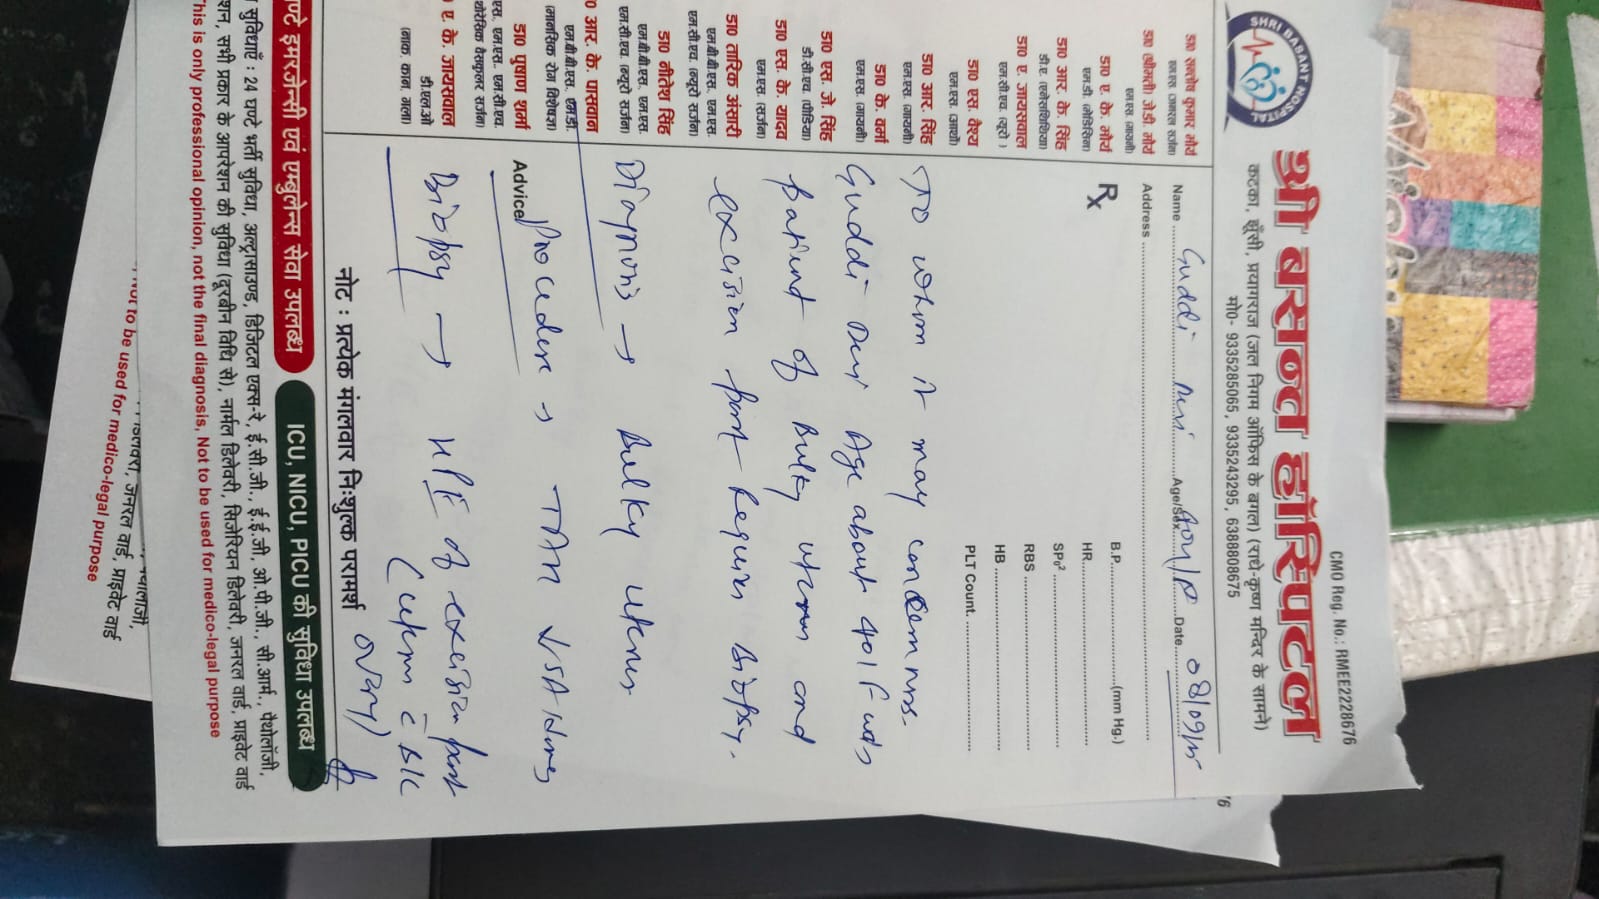 CMO Reg. No.: RMEE2228676
SHRI BASANT HOSPITAL
श्री बसन्त हॉस्पिटल
कटका, झूँसी, प्रयागराज (जल निगम ऑफिस के बगल) (राधे-कृष्ण मन्दिर के सामने)
मो0- 9335285065, 9335243295, 6388808675
डा0 सन्तोष कुमार मौर्य
एम.एस. (जनरल सर्जन)
डा0 (श्रीमती) जे.डी. मौर्य
एम.एस. (गायनी)
डा0 ए. के. मौर्य
एम.डी. (मेडिसिन)
डा0 आर. के. सिंह
डी.ए. (एनेसथिसिया)
डा0 ए. जायसवाल
एम.सी.एच. (यूरो)
डा0 एस वैश्य
एम.एस. (आर्थो)
डा0 आर. सिंह
एम.एस. (गायनी)
डा0 के. वर्मा
एम.एस. (गायनी)
डा0 एस. जे. सिंह
डी.सी.एच. (पीडिया)
डा0 एस. के. यादव
एम.एस. (सर्जन)
डा0 तारिक अंसारी
एम.बी.बी.एस. एम.एस.
एम.सी.एच. (न्यूरो सर्जन)
डा0 नीतेश सिंह
एम.बी.बी.एस. एम.एस.
एम.सी.एच. (न्यूरो सर्जन)
0 आर. के. पासवान
एम.बी.बी.एस. एम.डी.
(मानसिक रोग विशेषज्ञ)
डा0 भूषण शर्मा
एस. एम.एस. एम.सी.एच.
थोरेसिक वैसकुलर सर्जन)
ए. के. जायसवाल
डी.एल.ओ
(नाक, कान, गला)
Name Guddi Devi Age/Sex 40Y/F Date 08/09/
Address
Rx
B.P. (mm Hg.)
HR.
SPo²
RBS
HB
PLT Count.
To whom it may concern
Guddi Devi Age about 40 F was
patient of Bulky uterus and
excision part Requires Biopsy.
Diagnosis → Bulky uterus
Advice Procedure → TAH
Biopsy → HPE of excision part
(uterus c̄ B/L
ovary)
नोट : प्रत्येक मंगलवार निःशुल्क परामर्श
ण्टे इमरजेन्सी एवं एम्बुलेन्स सेवा उपलब्ध
ICU, NICU, PICU की सुविधा उपलब्ध
सुविधाएँ : 24 घण्टे भर्ती सुविधा, अल्ट्रासाउण्ड, डिजिटल एक्स-रे, ई.सी.जी., ई.ई.जी, ओ.पी.जी., सी.आर्म., पैथोलॉजी,
शन, सभी प्रकार के आपरेशन की सुविधा (दूरबीन विधि से), नार्मल डिलेवरी, सिजेरियन डिलेवरी, जनरल वार्ड, प्राइवेट वार्ड
his is only professional opinion, not the final diagnosis, Not to be used for medico-legal purpose
डिलेवरी, जनरल वार्ड, प्राइवेट वार्ड
Not to be used for medico-legal purpose
76